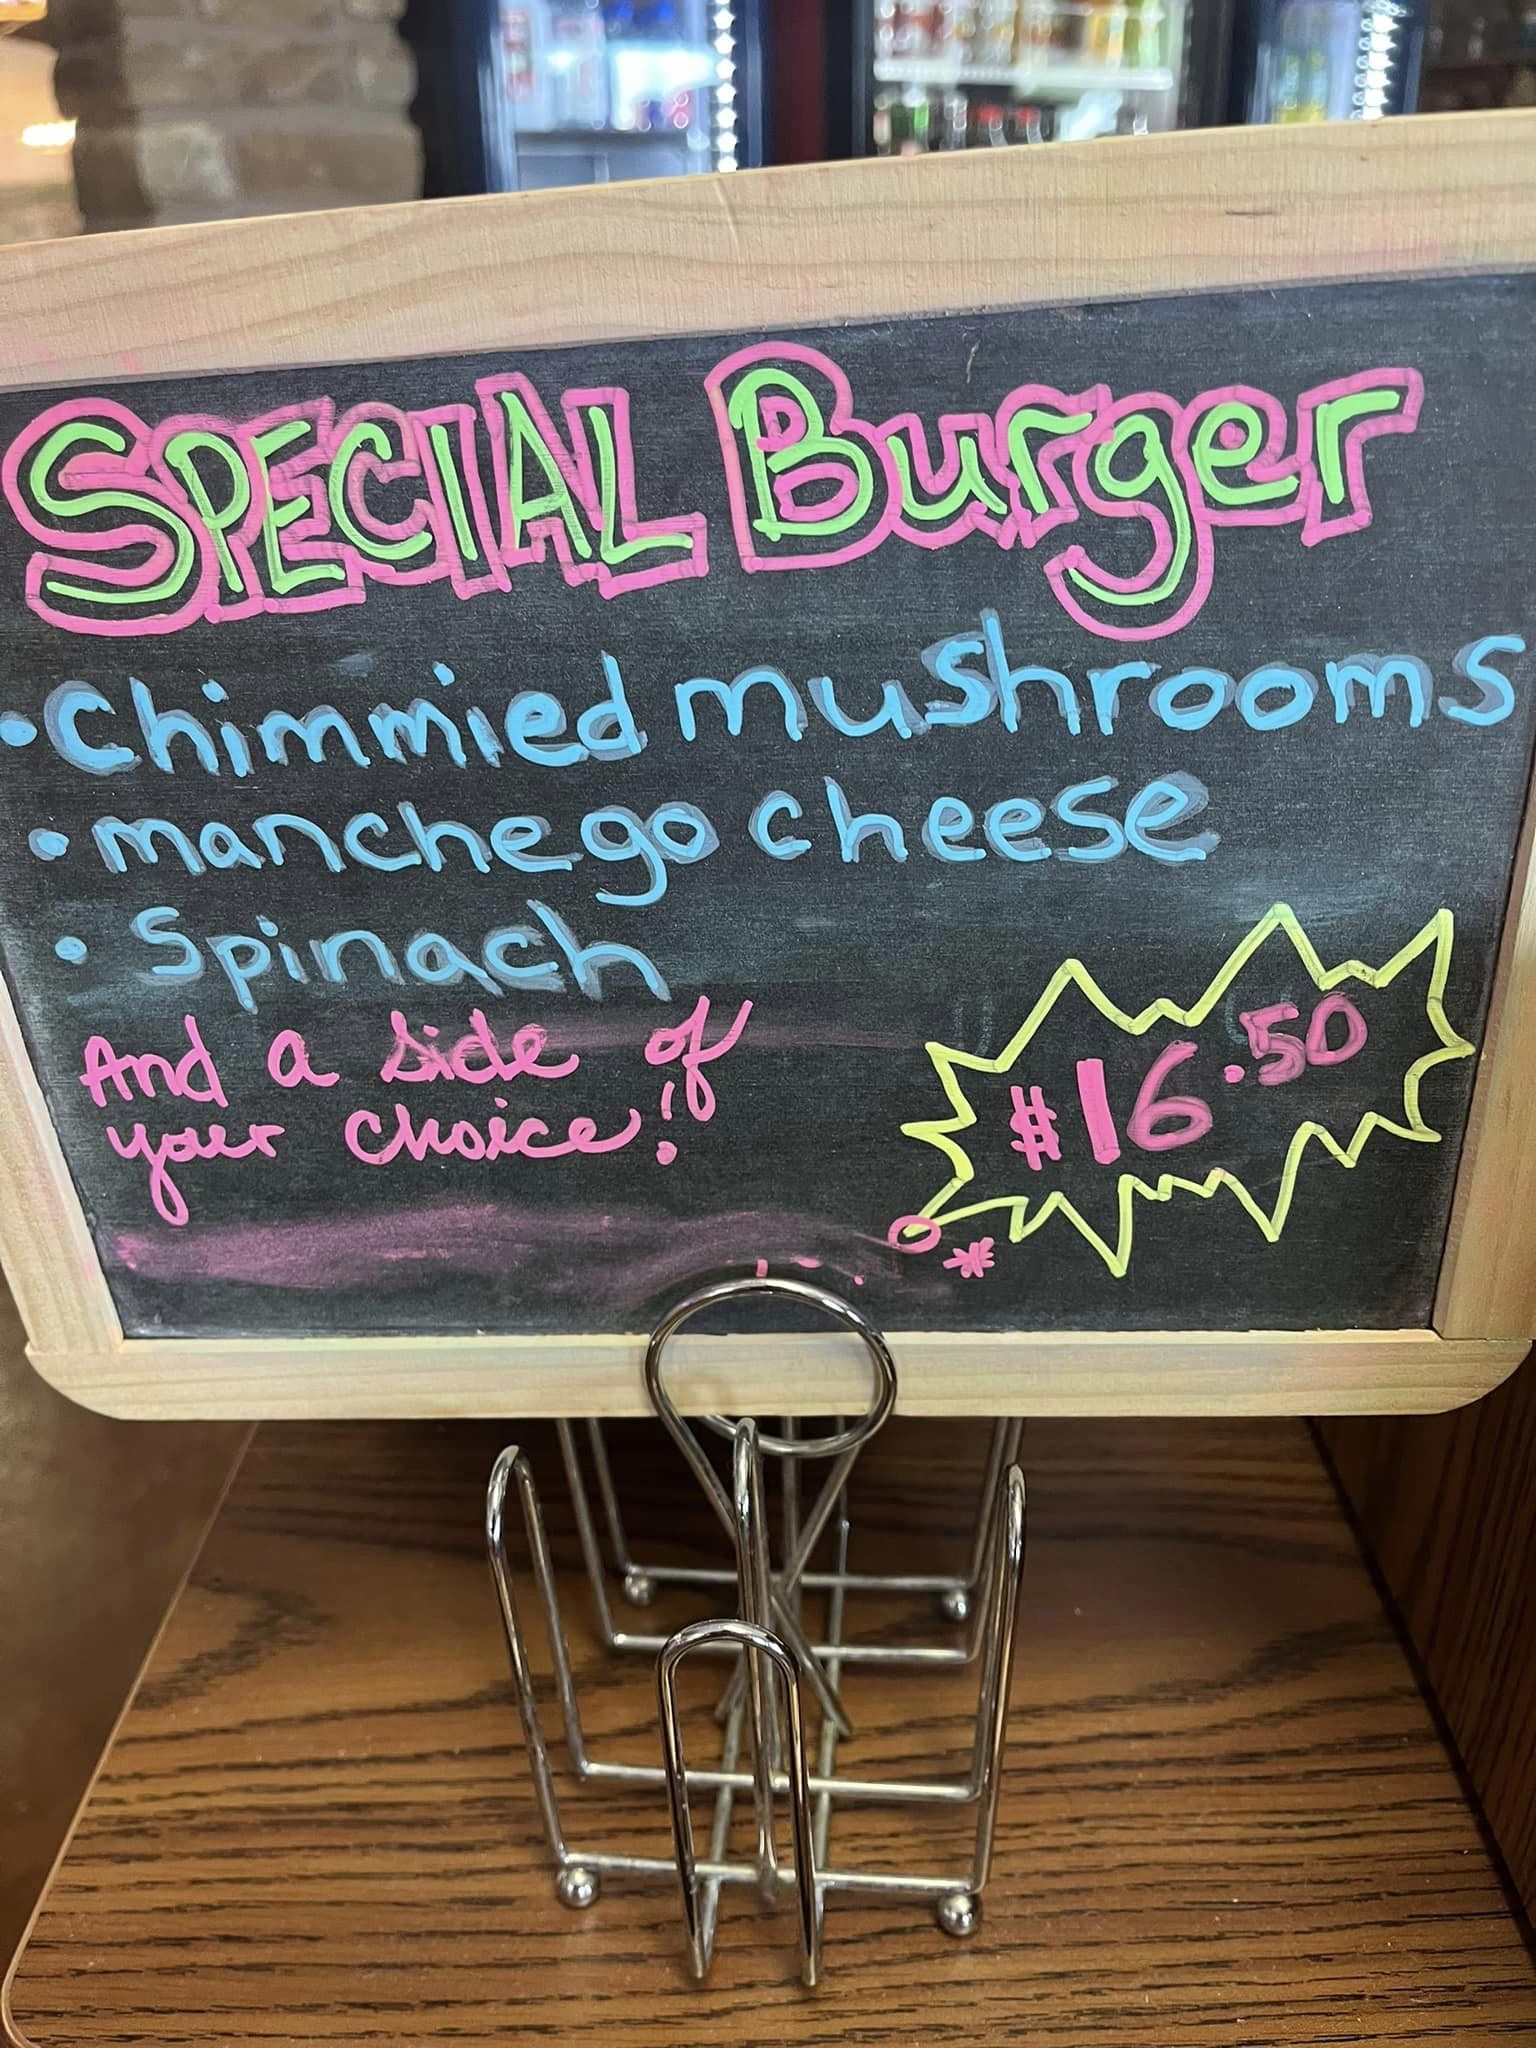 SPECIAL Burger
• Chimmied mushrooms
• manchego cheese
• Spinach
And a side of
your choice!
$16.50
*